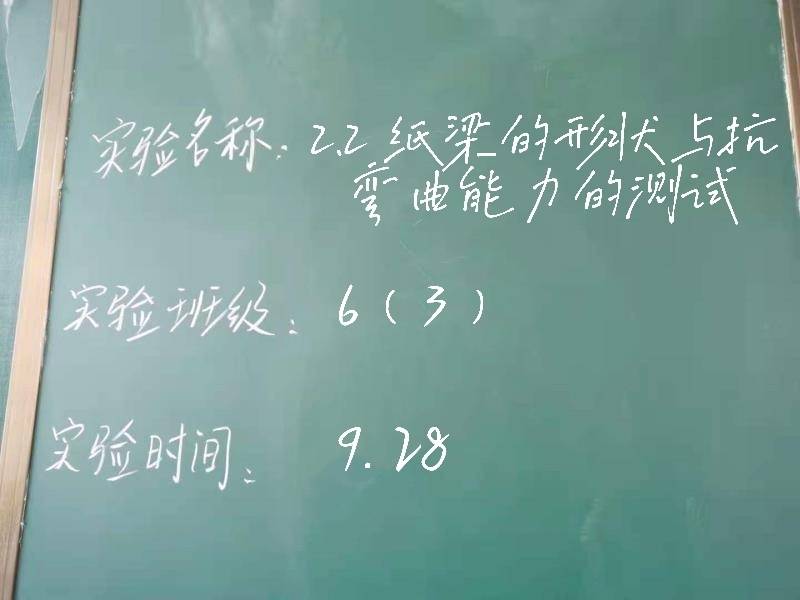 实验名称：2.2 纸梁的形状与抗
弯曲能力的测试
实验班级：6（3）
实验时间：9.28